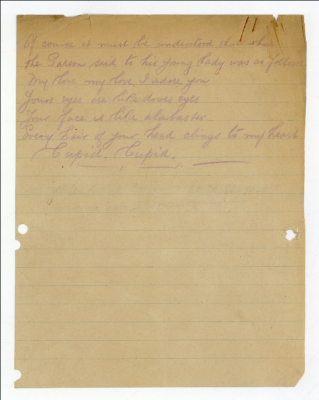 Of course it must be understood that what
the Parson said to his young lady was as follows
My love my love I adore you
Youre eyes are like doves eyes
Your face is like alabaster
Every hair of your head clings to my heart
Cupid. Cupid.